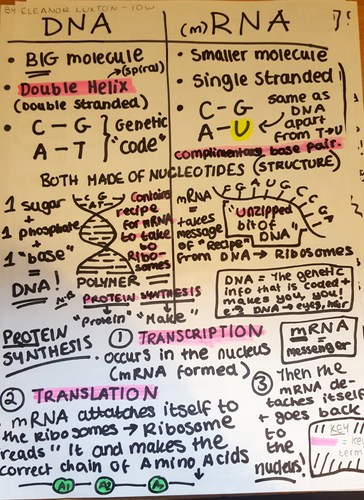 BY ELEANOR LUXTON - 10W
DNA
• BIG molecule
(spiral)
• Double Helix
(double stranded)
• C - G
A - T
Genetic
"code"
(m) RNA
• Smaller molecule
• Single Stranded
• C - G
A - U
same as
DNA
apart
from T→U
complimentary base pair.
BOTH MADE OF NUCLEOTIDES (STRUCTURE)
1 sugar
+
1 phosphate
+
1 "base"
=
DNA!
Contains
recipe
for mRNA
to take
to
Ribo-
somes
POLYMER
mRNA
=
takes
message
of "Recipe"
from DNA → Ribosomes
"unzipped
bit of
DNA"
N.B
PROTEIN SYNTHESIS
"Protein" "Make"
DNA = The genetic
info that is coded +
makes you, you!
e.g DNA → eyes, hair
PROTEIN
SYNTHESIS.
① TRANSCRIPTION
occurs in the nucleus
(mRNA formed)
mRNA
=
messenger
② TRANSLATION
mRNA attatches itself to
the Ribosomes → Ribosome
"reads" it and makes the
correct chain of Amino Acids
A1 A2 A3
③ Then the
mRNA de-
taches itself
+ goes back
to
the
nucleus!
KEY
= key
term